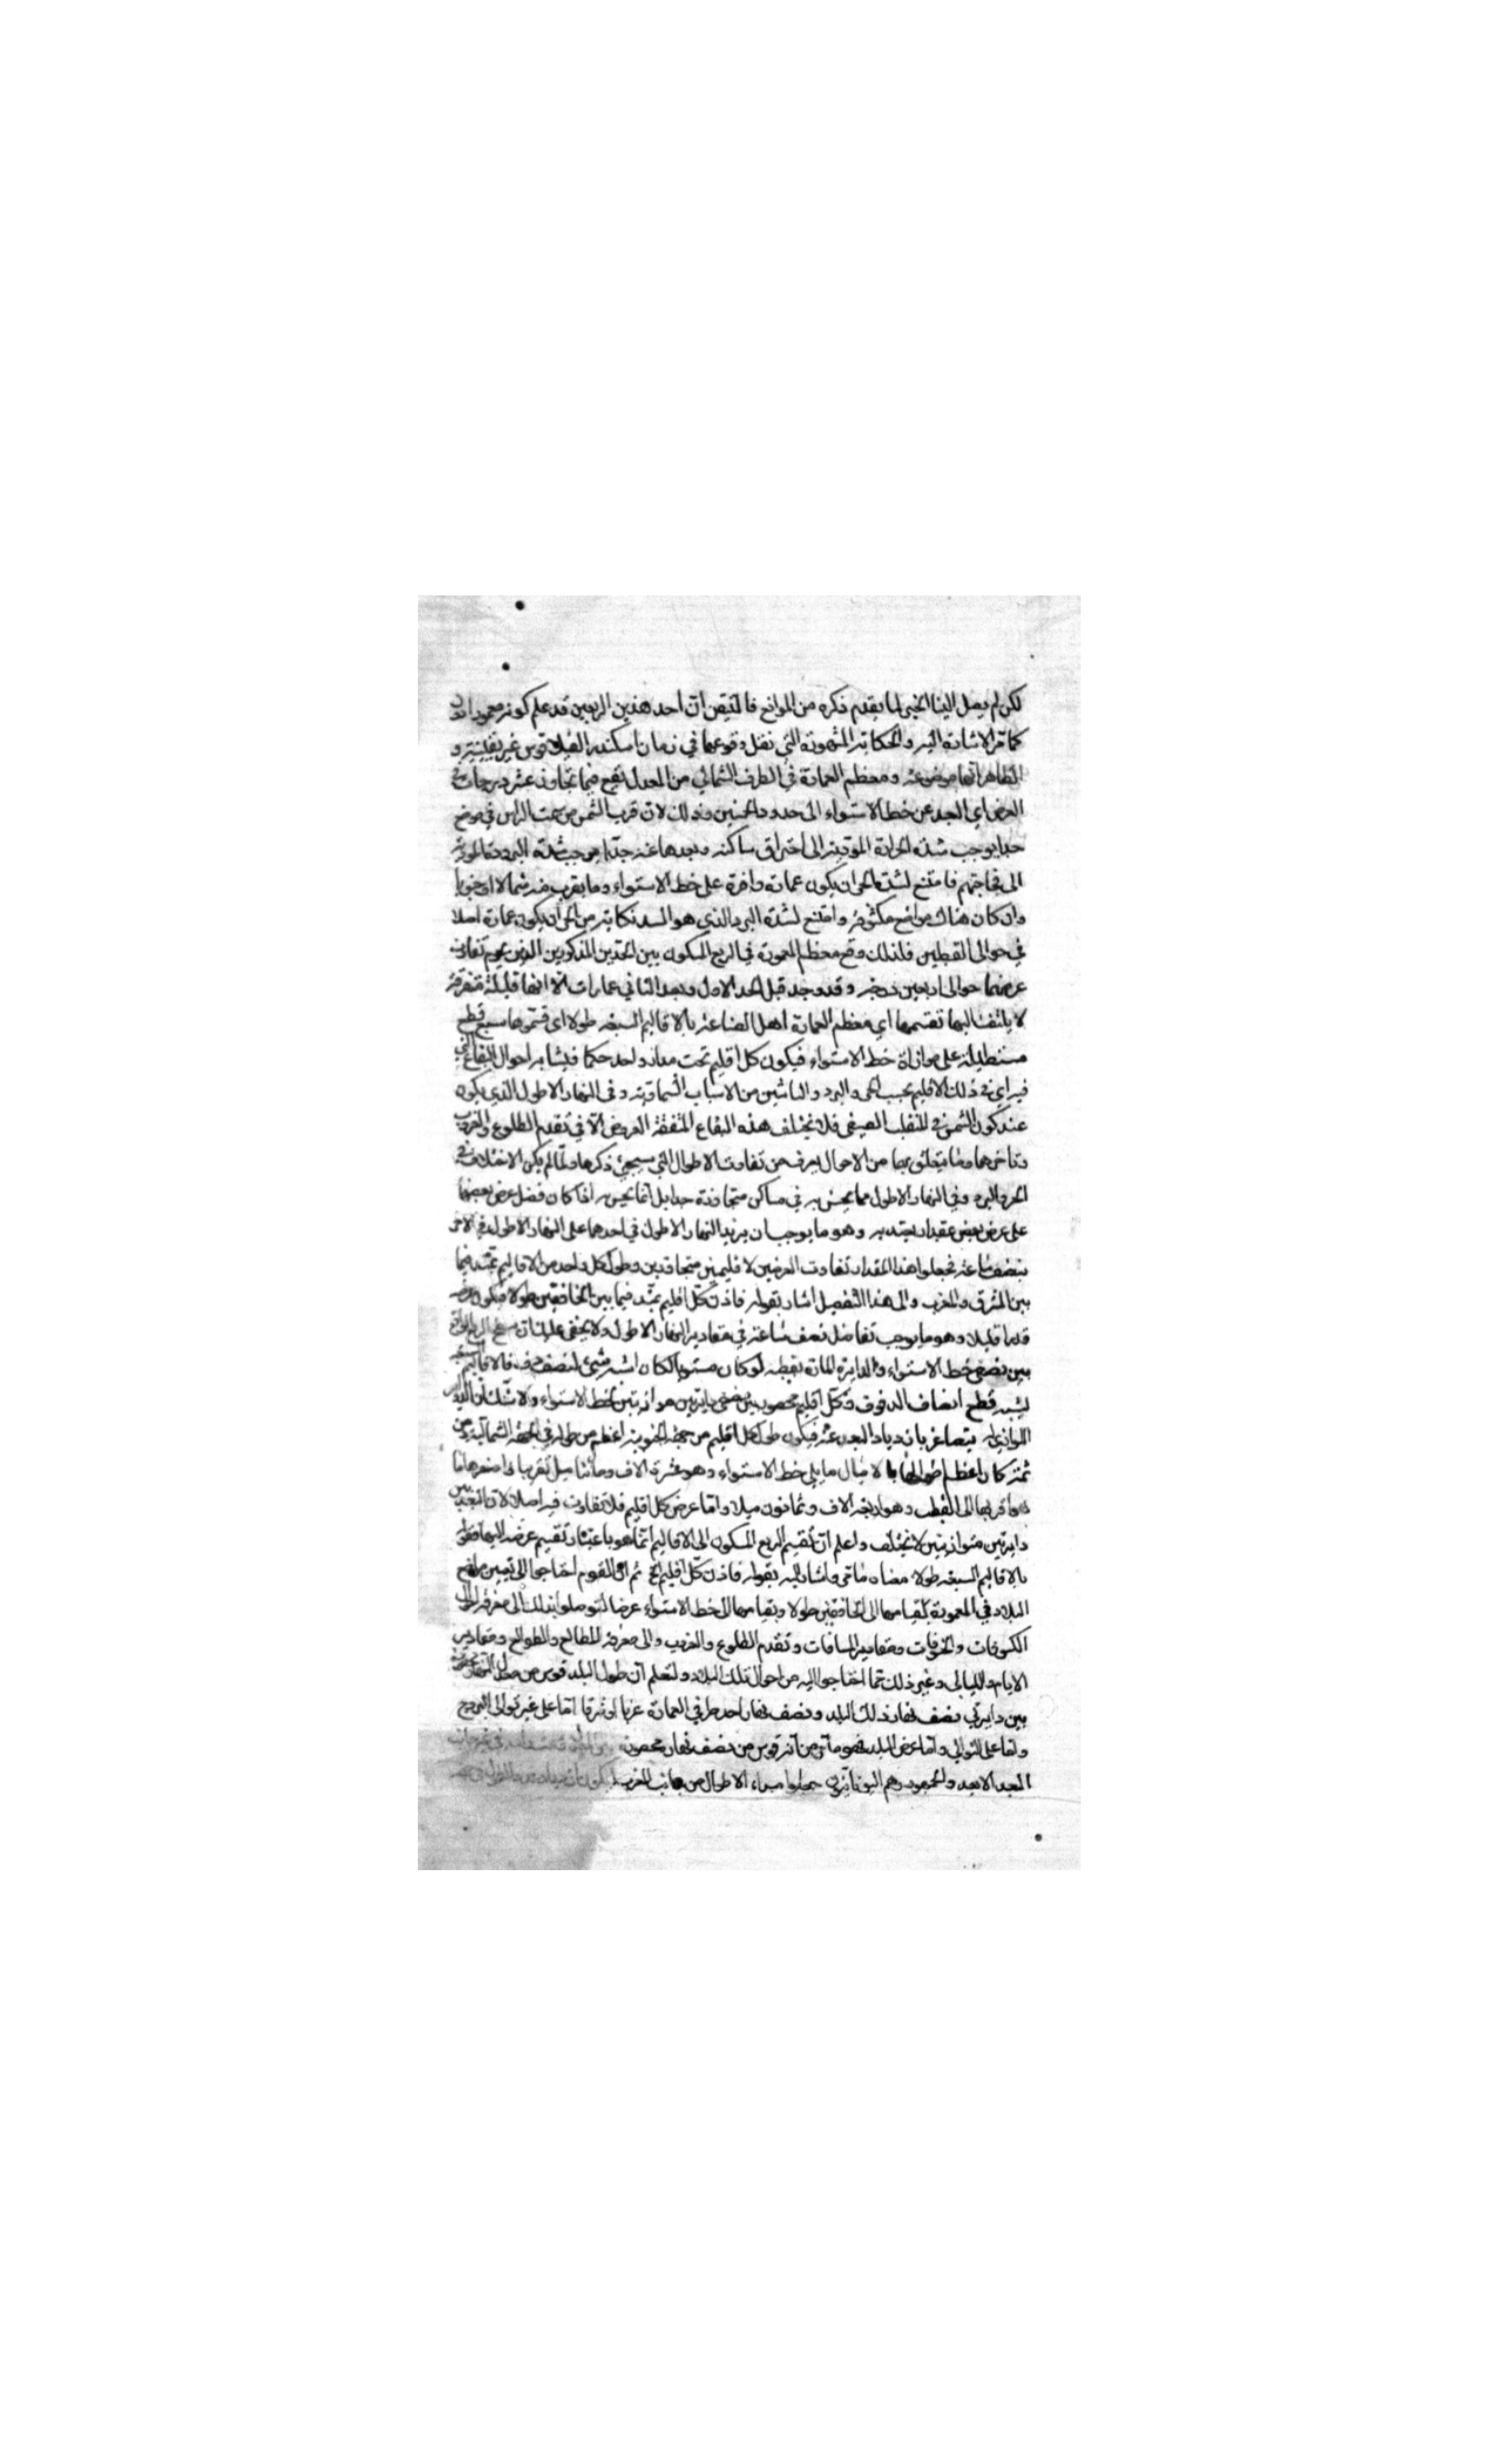 لكن لم يصل الينا الخبر لما يقدم ذكره من الموانع فالمتيقن ان احد هذين الربعين قد علم كونه معمورا دون
كما مر الاشارة اليه والحكاية المشهورة التي نقل وقوعها في زمان اسكندر الفيلاقوس غير يقينية و
الظاهر انها موضوعة ومعظم العمارة في الطرف الشمالي من المعدل تقع فيما تجاوز عشر درجات في
العرض اي البعد عن خط الاستواء الى حدود الخمسين وذلك لان قرب الشمس من سمت الراس في موضع
جدا يوجب شدة الحرارة الموديه الى احتراق ساكنه وبعدها عنه جدا يوجب شدة البرودة المودية
الى فجاجتهم فامتنع لشدة الحر ان يكون عمارة وافرة على خط الاستواء وما يقرب منه شمالا او جنوبا
وان كان هناك مواضع مكشوفة وامتنع لشدة البرد الذي هو اشد نكاية من الحر ان يكون عمارة اصلا
في حوالى القطبين فلذلك وقع معظم المعمورة في الربع المسكون بين الحدين المذكورين الذين يكون تفاوت
عرضهما حوالى اربعين درجة وقد وجد قبل الحد الاول وبعد الثاني عمارات الا انها قليلة متفرقة
لا يلتفت اليها تقسمها اي معظم العمارة اهل الصناعة بالاقاليم السبعة طولا اى قسموها سبع قطع
مستطيلة على موازاة خط الاستواء فيكون كل اقليم تحت مدار واحد حكما فيشابه احوال البقاع التي
فيه اي في ذلك الاقليم بحسب الحر والبرد والناشئين من الاسباب السماوية وفي النهار الاطول الذي يكون
عند كون الشمس في المنقلب الصيفي فلا يختلف هذه البقاع المتفقة العروض الا في تقدم الطلوع والغروب
وتاخرهما وما يتعلق بها من الاحوال يعرف من تفاوت الاطوال التي سيجئ ذكرها ولما لم يكن الاختلاف في
الحر والبرد وفي النهار الاطول مما يحس به في مساكن متجاورة جدا بل انما يحس به اذا كان فضل عرض بعضها
على عرض بعض بمقدار يعتد به وهو ما يوجب ان يزيد النهار الاطول في احدهما على النهار الاطول في الاخر
بنصف ساعة فجعلوا هذا المقدار تفاوت العرضين لاقليمين متجاورين وطول كل واحد من الاقاليم يمتد فيما
بين المشرق والمغرب والى هذا التفصيل اشار بقوله فاذن كل اقليم يمتد فيما بين الخافقين طولا ويكون عرضه
قدرا قليلا وهو ما يوجب تفاضل نصف ساعة في مقادير النهار الاطول ولا يخفى عليك ان سطح الربع الواقع
بين نصفى خط الاستواء والدايرة المارة بقطبه لو كان مستويا لكان اشبه شئ بنصف دف فالاقاليم السبعة
يشبه قطع انصاف الدفوف وكل اقليم محصور بين نصفى دايرتين موازيتين لخط الاستواء ولا شك ان الدواير
الموازية له يتصاغر بازدياد البعد عنه فيكون طول كل اقليم من جهة الجنوبية اعظم من طوله في الجهة الشمالية ومن
ثمة كان اعظم اطوالها بالاميال ما يلي خط الاستواء وهو عشرة الاف ومائتا ميل تقريبا واصغرها ما
هو اقربها الى القطب وهو اربعة الاف وثمانون ميلا واما عرض كل اقليم فلا تفاوت فيه اصلا لان البعد بين
دايرتين متوازيتين لا يختلف واعلم ان تقسيم الربع المسكون الى الاقاليم انما هو باعتبار تقسيم عرضه اليها فقوله
بالاقاليم السبعة طولا معناه ما مر واشار اليه بقوله فاذن كل اقليم الخ ثم ان القوم احتاجوا الى تعيين مواضع
البلاد في المعمورة بقياسها الى الخافقين طولا وبقياسها الى خط الاستواء عرضا ليتوصلوا بذلك الى معرفة احوال
الكسوفات والخسوفات ومقادير المسافات وتقدم الطلوع والغروب والى معرفة المطالع والطوالع ومقادير
الايام والليالى وغير ذلك مما احتاجوا اليه من احوال تلك البلاد ولتعلم ان طول البلد قوس من معدل النهار محصورة
بين دايرتي نصف نهار ذلك البلد ونصف نهار احد طرفي العمارة غربا او شرقا اما على غير توالى البروج
واما على التوالي واما عرض البلد فهو ما مر من انه قوس من نصف نهار محصورة
البعد الابعد والجمهور وهم اليونانيون جعلوا مبداء الاطوال من جانب المغرب